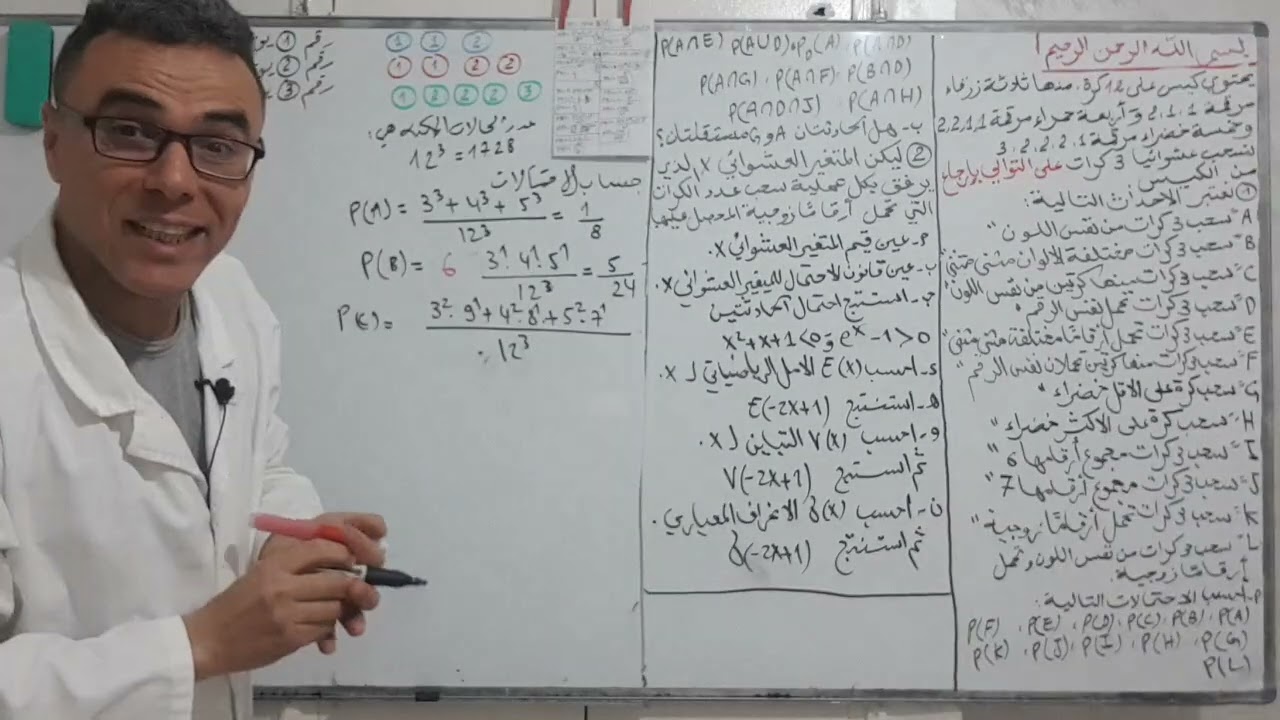 بسم الله الرحمن الرحيم
يحتوي كيس على 12 كرة. منها ثلاثة زرقاء
مرقمة 2,1,1 و أربعة حمراء مرقمة 2,2,1,1
و خمسة خضراء مرقمة 3,2,2,2,1
نسحب عشوائيا 3 كرات على التوالي بإرجاع
من الكيس
① نعتبر الأحداث التالية:
A "سحب 3 كرات من نفس اللون"
B "سحب 3 كرات مختلفة الألوان مثنى مثنى"
C "سحب 3 كرات بينها كرتين من نفس اللون"
D "سحب 3 كرات تحمل نفس الرقم"
E "سحب 3 كرات تحمل أرقاما مختلفة مثنى مثنى"
F "سحب 3 كرات منها كرتين تحملان نفس الرقم"
G "سحب كرة على الاقل خضراء"
H "سحب كرة على الاكثر خضراء"
I "سحب 3 كرات مجموع أرقامها 6"
J "سحب 3 كرات مجموع أرقامها 7"
K "سحب 3 كرات تحمل أرقاما زوجية"
L "سحب 3 كرات من نفس اللون وتحمل
أرقاما زوجية.
أحسب الاحتمالات التالية:
P(A) ، P(B) ، P(C) ، P(D) ، P(E) ، P(F)
P(G) ، P(H) ، P(I) ، P(J) ، P(K)
P(L)
P(A∩E) P(A∪D) P_D(A) ، P(A∩D)
P(A∩G) ، P(A∩F) ، P(B∩D)
P(A∩D∩J) ، P(A∩H)
ب- هل الحادثتان A و G مستقلتان؟
② ليكن المتغير العشوائي X الذي
يرفق بكل عملية سحب عدد الكرات
التي تحمل أرقاما زوجية المحصل عليها
عين قيم المتغير العشوائي X.
ب- عين قانون الاحتمال للمتغير العشوائي X.
ج- استنتج احتمال الحادثتين
e^x -1>0 و x²+x+1<0
د- احسب E(X) الامل الرياضياتي لـ X.
هـ- استنتج E(-2X+1)
و- احسب V(X) التباين لـ X.
ثم استنتج V(-2X+1)
ن- احسب δ(X) الانحراف المعياري.
ثم استنتج δ(-2X+1)
رقم ①
رقم ②
رقم ③
① ① ②
① ① ② ②
① ② ② ② ③
عدد الحالات الممكنة هي:
12³ = 1728
حساب الاحتمالات
P(A) = (3³ + 4³ + 5³)/12³ = 1/8
P(B) = 6 (3¹.4¹.5¹)/12³ = 5/24
P(C) = (3².9¹ + 4².8¹ + 5².7¹)/12³